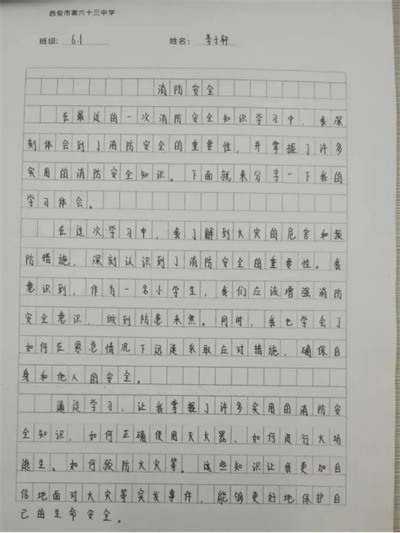 西安市第六十三中学
班级: 6.1 姓名: 李子轩
消防安全
在最近的一次消防安全知识学习中，我深
刻体会到了消防安全的重要性，并掌握了许多
实用的消防安全知识。下面就来分享一下我的
学习体会。
在这次学习中，我了解到火灾的危害和预
防措施，深刻认识到了消防安全的重要性。我
意识到，作为一名小学生，我们应该增强消防
安全意识，做到防患未然。同时，我也学会了
如何在紧急情况下迅速采取应对措施，确保自
身和他人的安全。
通过学习，让我掌握了许多实用的消防安
全知识，如何正确使用灭火器、如何进行火场
逃生、如何预防火灾等。这些知识让我更加自
信地面对火灾等突发事件，能够更好地保护自
己的生命安全。